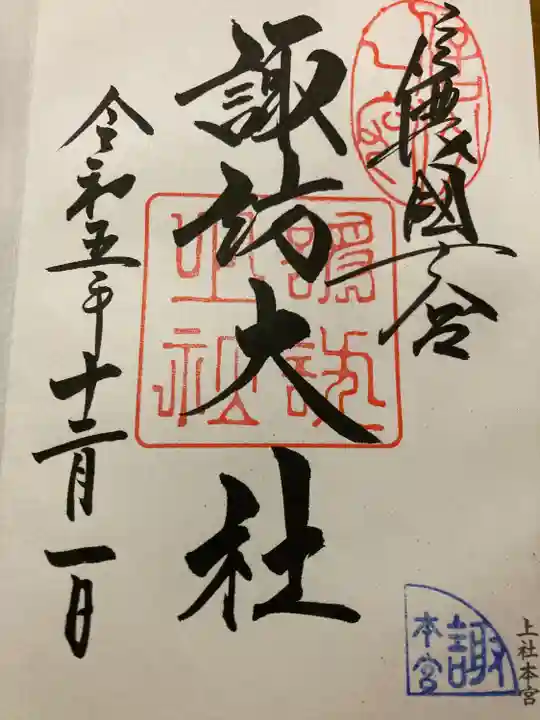 信濃國一宮
諏訪大社
令和五年十二月一日
諏
本宮
上社本宮